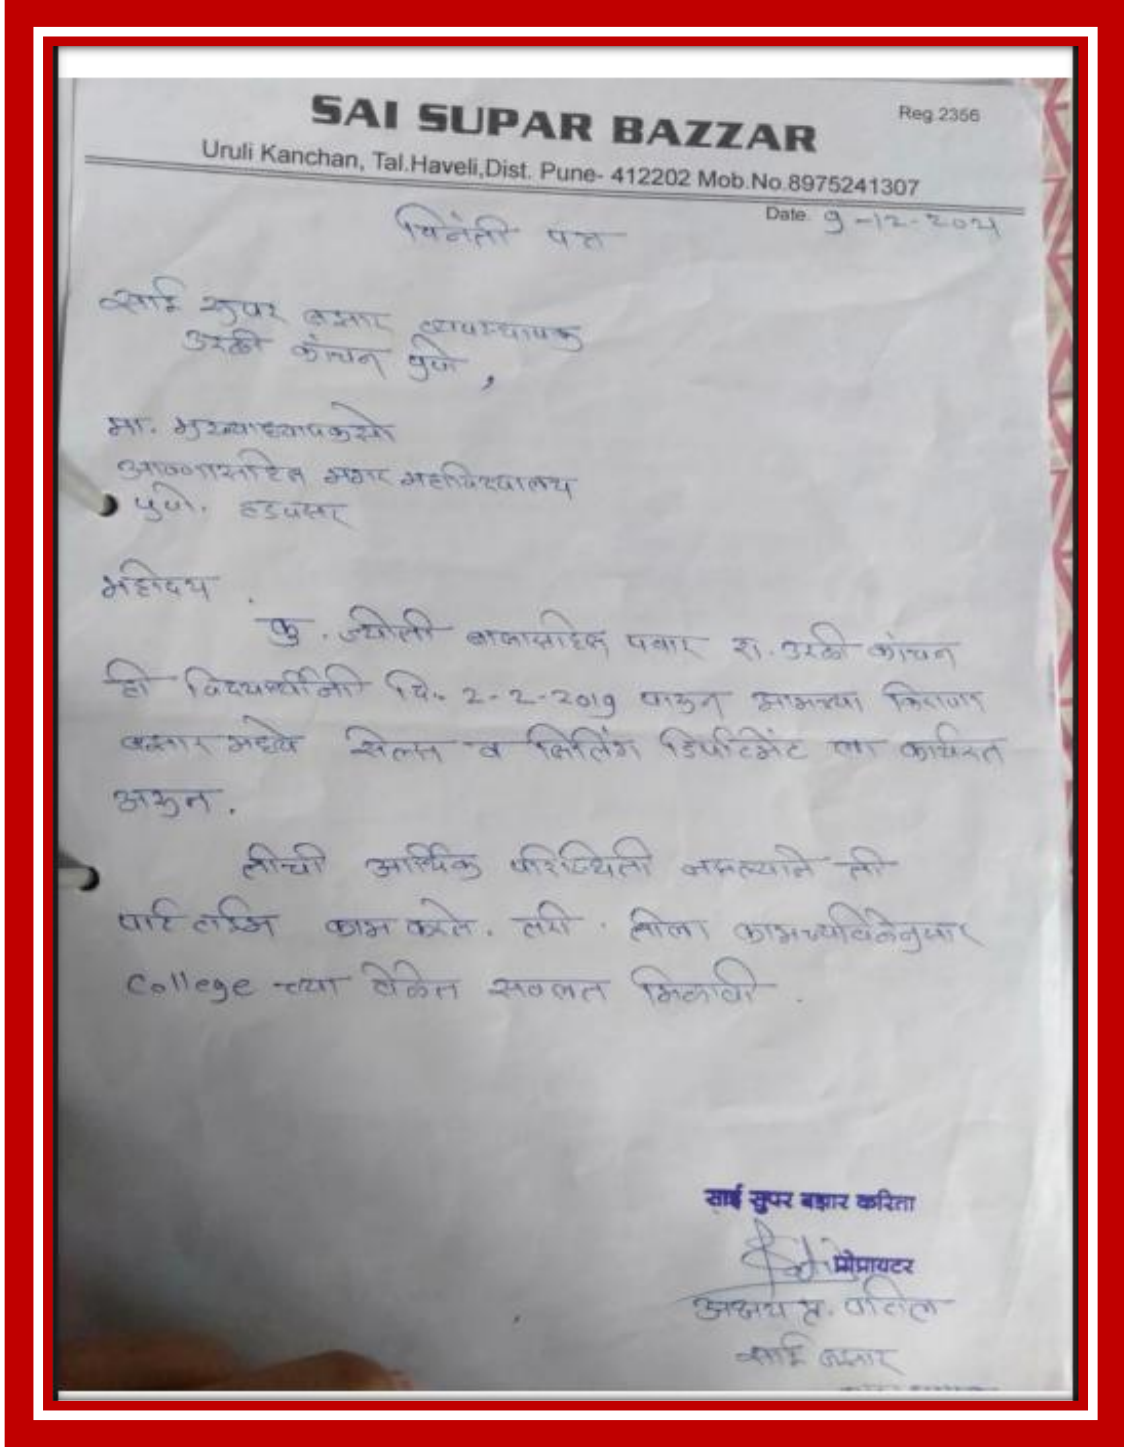 SAI SUPAR BAZZAR
Reg.2356
Uruli Kanchan, Tal.Haveli,Dist. Pune- 412202 Mob.No.8975241307
Date. 9-12-2021
विनंती पत्र
साई सुपर बझार व्यवस्थापक
उरळी कांचन पुणे,
मा. मुख्याध्यापकसो
आण्णासाहेब मगर महाविद्यालय
पुणे. हडपसर
महोदय.
कु. ज्योती बाळासाहेब पवार रा. उरळी कांचन
ही विद्यार्थीनी दि. 2-2-2019 पासुन आमच्या किराणा
बझार मध्ये सेल्स व बिलिंग डिपार्टमेंट ला कार्यरत
असुन.
तीची आर्थिक परिस्थिती नसल्याने ती
पार्ट टाईम काम करते. तरी. तीला
College च्या वेळेत सवलत मिळावी.
साई सुपर बझार करिता
प्रोप्रायटर
अक्षय प्र. पाटिल
साई बझार